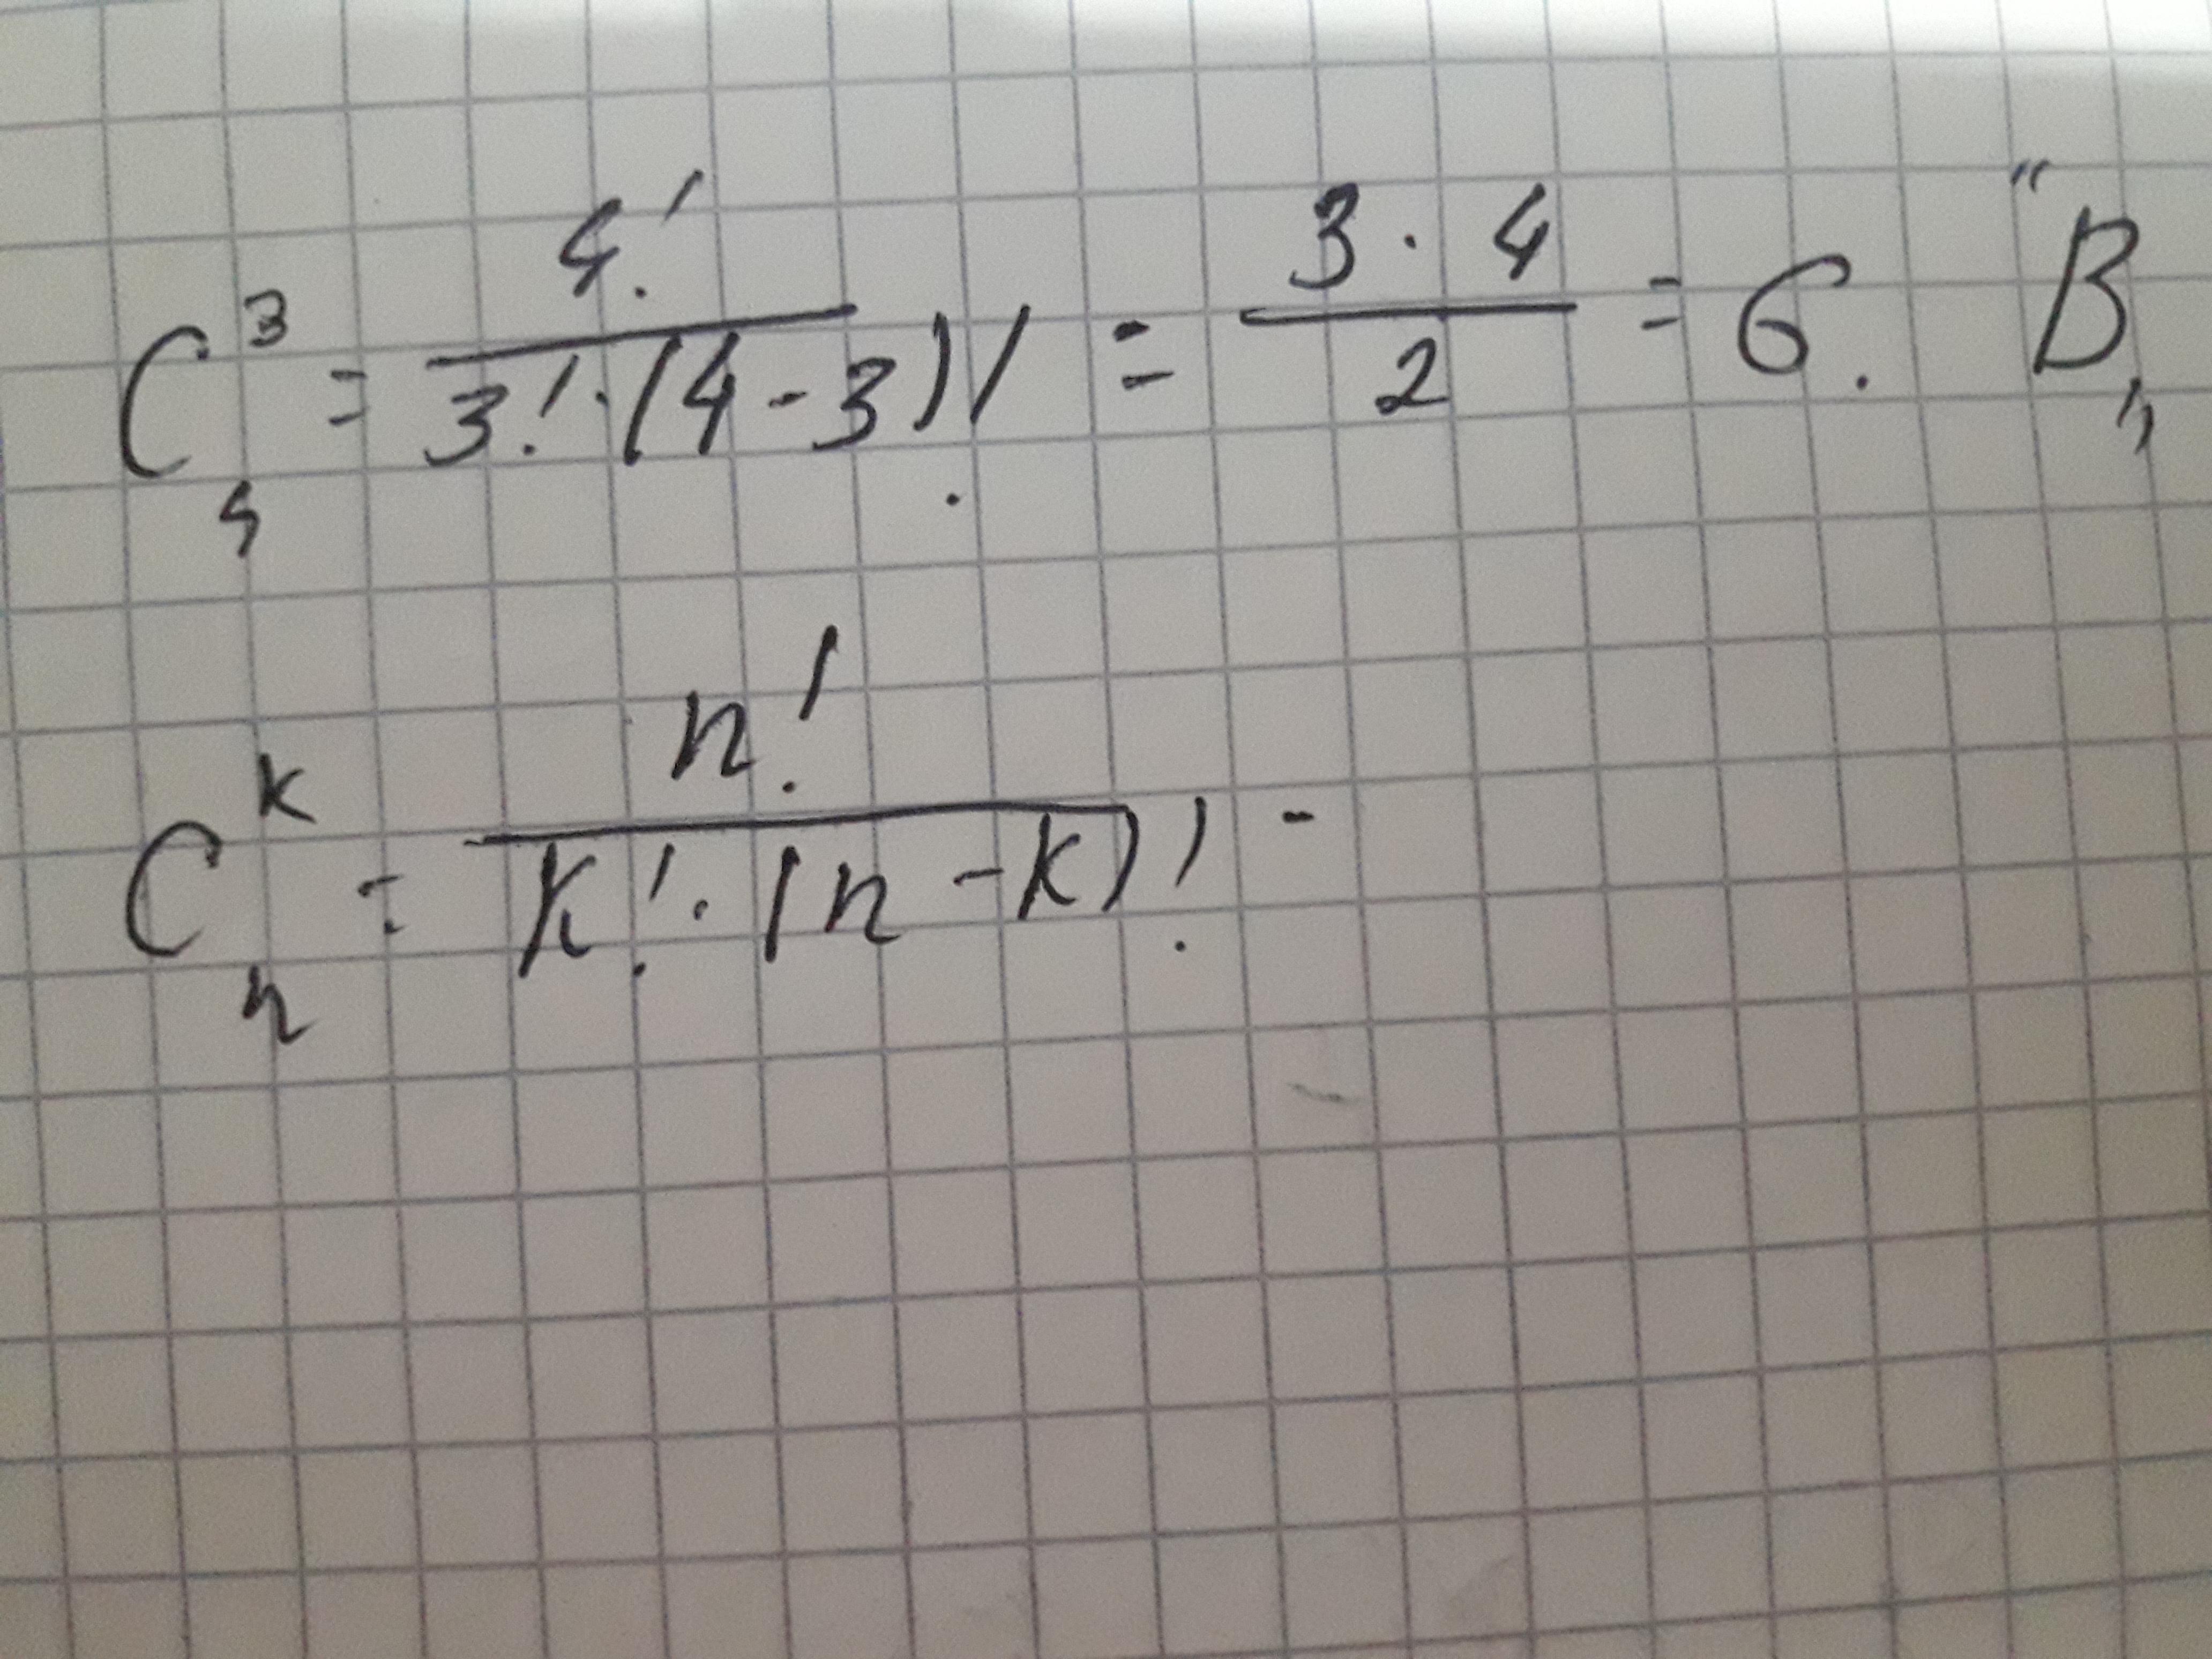 C₄³ = 4! / 3!·(4-3)! = 3·4 / 2 = 6. "B„
Cₙᵏ = n! / k!·(n-k)! -